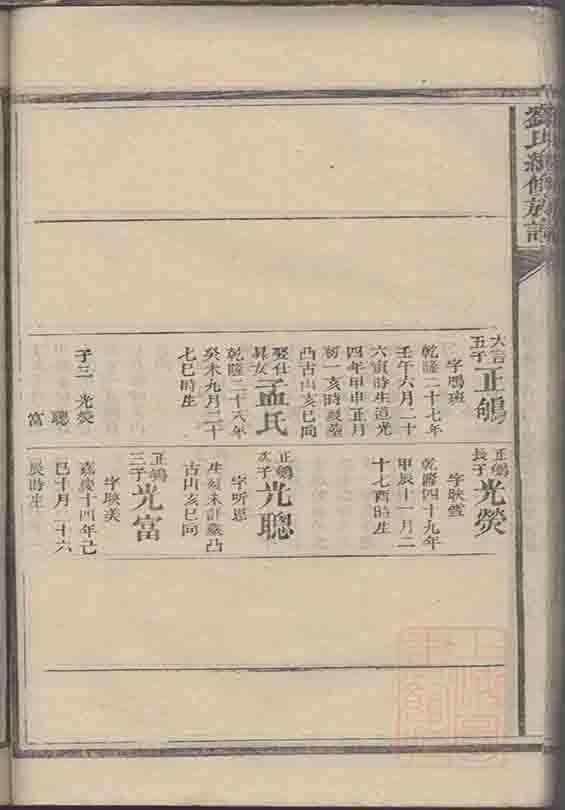 劉氏續修族譜
大言
五子
正鵃
字鵬班
乾隆二十七年
壬午六月二十
六寅時生道光
四年甲申正月
初一亥時歿葬
凸古山亥巳向
娶仕
昇女
孟氏
乾隆二十八年
癸未九月二十
七巳時生
子三 光熒
聰
富
正鵃
長子
光熒
字映雪
乾隆四十九年
甲辰十一月二
十七酉時生
正鵃
次子
光聰
字听思
生歿未詳葬凸
古山亥巳向
正鵃
三子
光富
字映美
嘉慶十四年己
巳十月二十六
辰時生